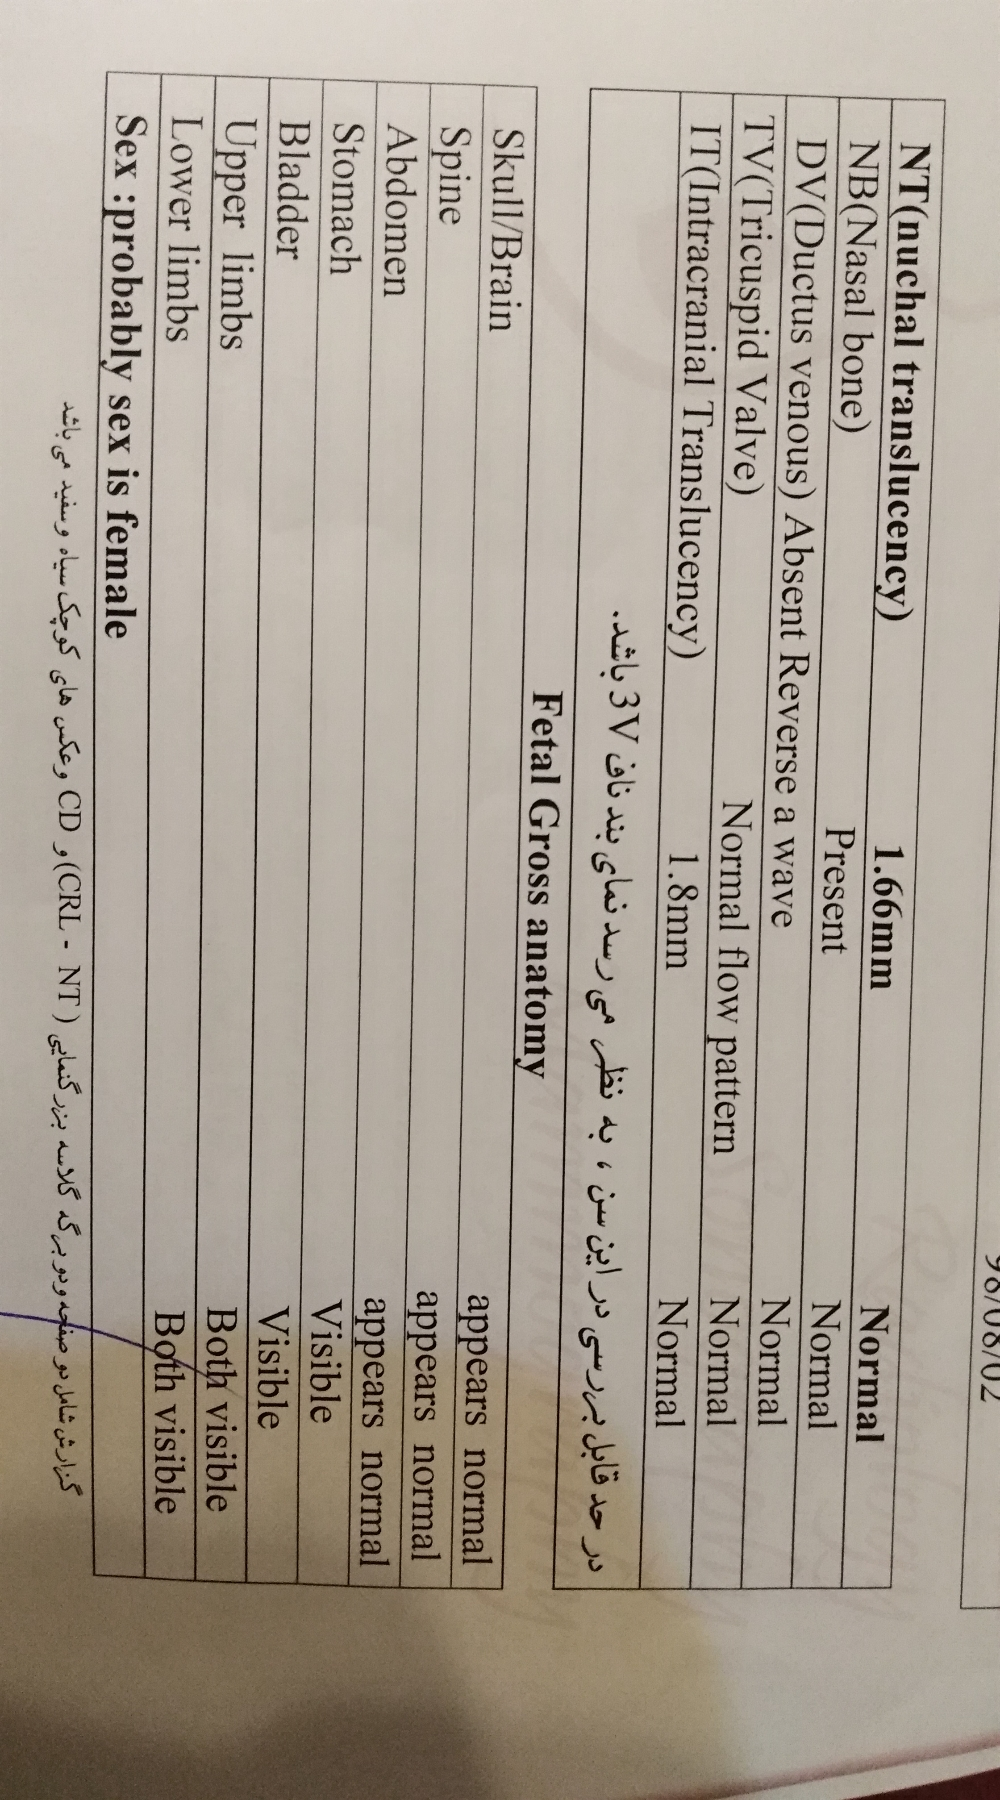 98/08/02
NT(nuchal translucency) 1.66mm Normal
NB(Nasal bone) Present Normal
DV(Ductus venous) Absent Reverse a wave Normal
TV(Tricuspid Valve) Normal flow pattern Normal
IT(Intracranial Translucency) 1.8mm Normal
در حد قابل بررسی در این سن ، به نظر می رسد نمای بند ناف 3V باشد.
Fetal Gross anatomy
Skull/Brain appears normal
Spine appears normal
Abdomen appears normal
Stomach Visible
Bladder Visible
Upper limbs Both visible
Lower limbs Both visible
Sex :probably sex is female
گزارش شامل دو صفحه ودو برگه گلاسه بزرگنمایی ( CRL - NT)و CD وعکس های کوچک سیاه وسفید می باشد